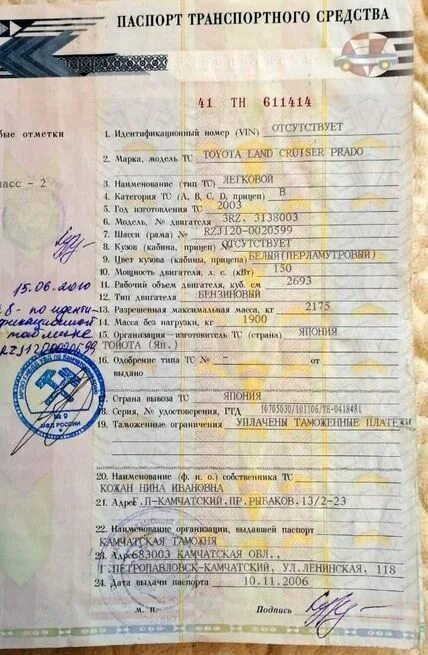 ПАСПОРТ ТРАНСПОРТНОГО СРЕДСТВА
41 ТН 611414
бые отметки
асс - 2
1. Идентификационный номер (VIN) ОТСУТСТВУЕТ
2. Марка, модель ТС TOYOTA LAND CRUISER PRADO
3. Наименование (тип ТС) ЛЕГКОВОЙ
4. Категория ТС (A, B, C, D, прицеп) B
5. Год изготовления ТС 2003
6. Модель, № двигателя 3RZ, 3138003
7. Шасси (рама) № RZJ120-0020599
8. Кузов (кабина, прицеп) ОТСУТСТВУЕТ
9. Цвет кузова (кабины, прицепа) БЕЛЫЙ(ПЕРЛАМУТРОВЫЙ)
10. Мощность двигателя, л. с. (кВт) 150
11. Рабочий объем двигателя, куб. см 2693
12. Тип двигателя БЕНЗИНОВЫЙ
13. Разрешенная максимальная масса, кг 2175
14. Масса без нагрузки, кг 1900
15. Организация—изготовитель ТС (страна) ЯПОНИЯ
ТОЙОТА (Яп.)
16. Одобрение типа ТС № — от
выдано
Страна вывоза ТС ЯПОНИЯ
18. Серия, № удостоверения, ГТД 10705030/101106/ТВ-0418481
19. Таможенные ограничения УПЛАЧЕНЫ ТАМОЖЕННЫЕ ПЛАТЕЖИ
20. Наименование (ф. и. о.) собственника ТС
КОЖАН НИНА ИВАНОВНА
21. Адрес Г.П-КАМЧАТСКИЙ,ПР.РЫБАКОВ,13/2-23
22. Наименование организации, выдавшей паспорт
КАМЧАТСКАЯ ТАМОЖНЯ
23. Адрес 683003 КАМЧАТСКАЯ ОБЛ.,
Г.ПЕТРОПАВЛОВСК-КАМЧАТСКИЙ, УЛ.ЛЕНИНСКАЯ, 118
24. Дата выдачи паспорта 10.11.2006
М. П. Подпись
15.06.2010
8 - по иденти-
фикационной
табличке
RZJ1200020599
№ 9
МВД РОССИИ